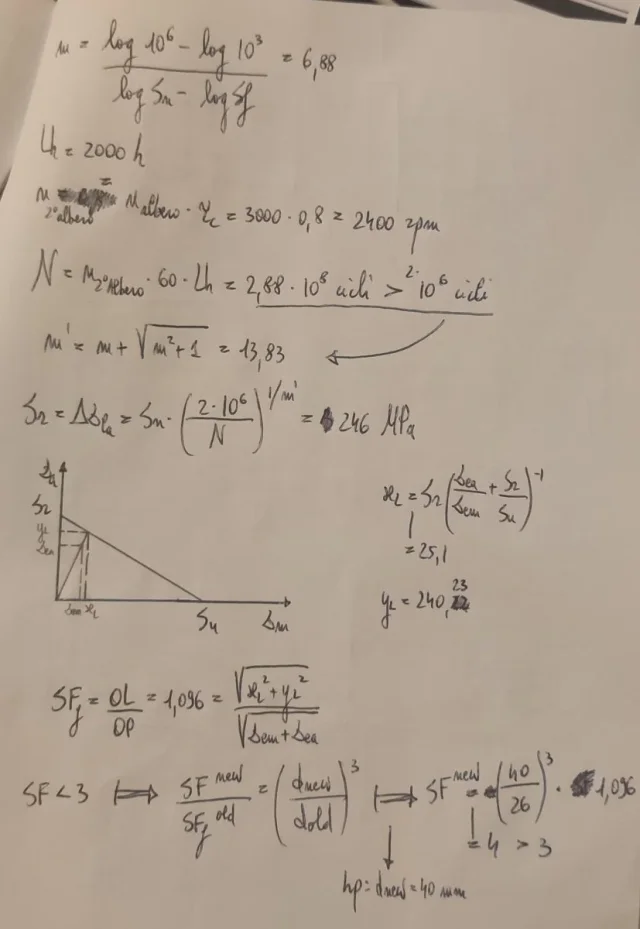 m = (log 10⁶ - log 10³) / (log Sn - log Sf) = 6,88
Lh = 2000 h
n 2°albero = n albero · τc = 3000 · 0,8 = 2400 rpm
N = n 2°Albero · 60 · Lh = 2,88 · 10⁸ cicli > 2·10⁶ cicli
m' = m + √(m² + 1) = 13,83
Sr = ΔσPa = Sn · (2·10⁶ / N)^(1/m') = 246 MPa
Sr
yL
σea
σem xL Su σm
xL = Sr (σea/σem + Sr/Su)⁻¹
= 25,1
yL = 240,23
SFf = OL/OP = 1,096 = √(xL² + yL²) / √(σem + σea)
SF < 3 ⟼ SF new / SFf old = (dnew / dold)³ ⟼ SF new = (40/26)³ · 1,096
= 4 > 3
hp: dnew = 40 mm